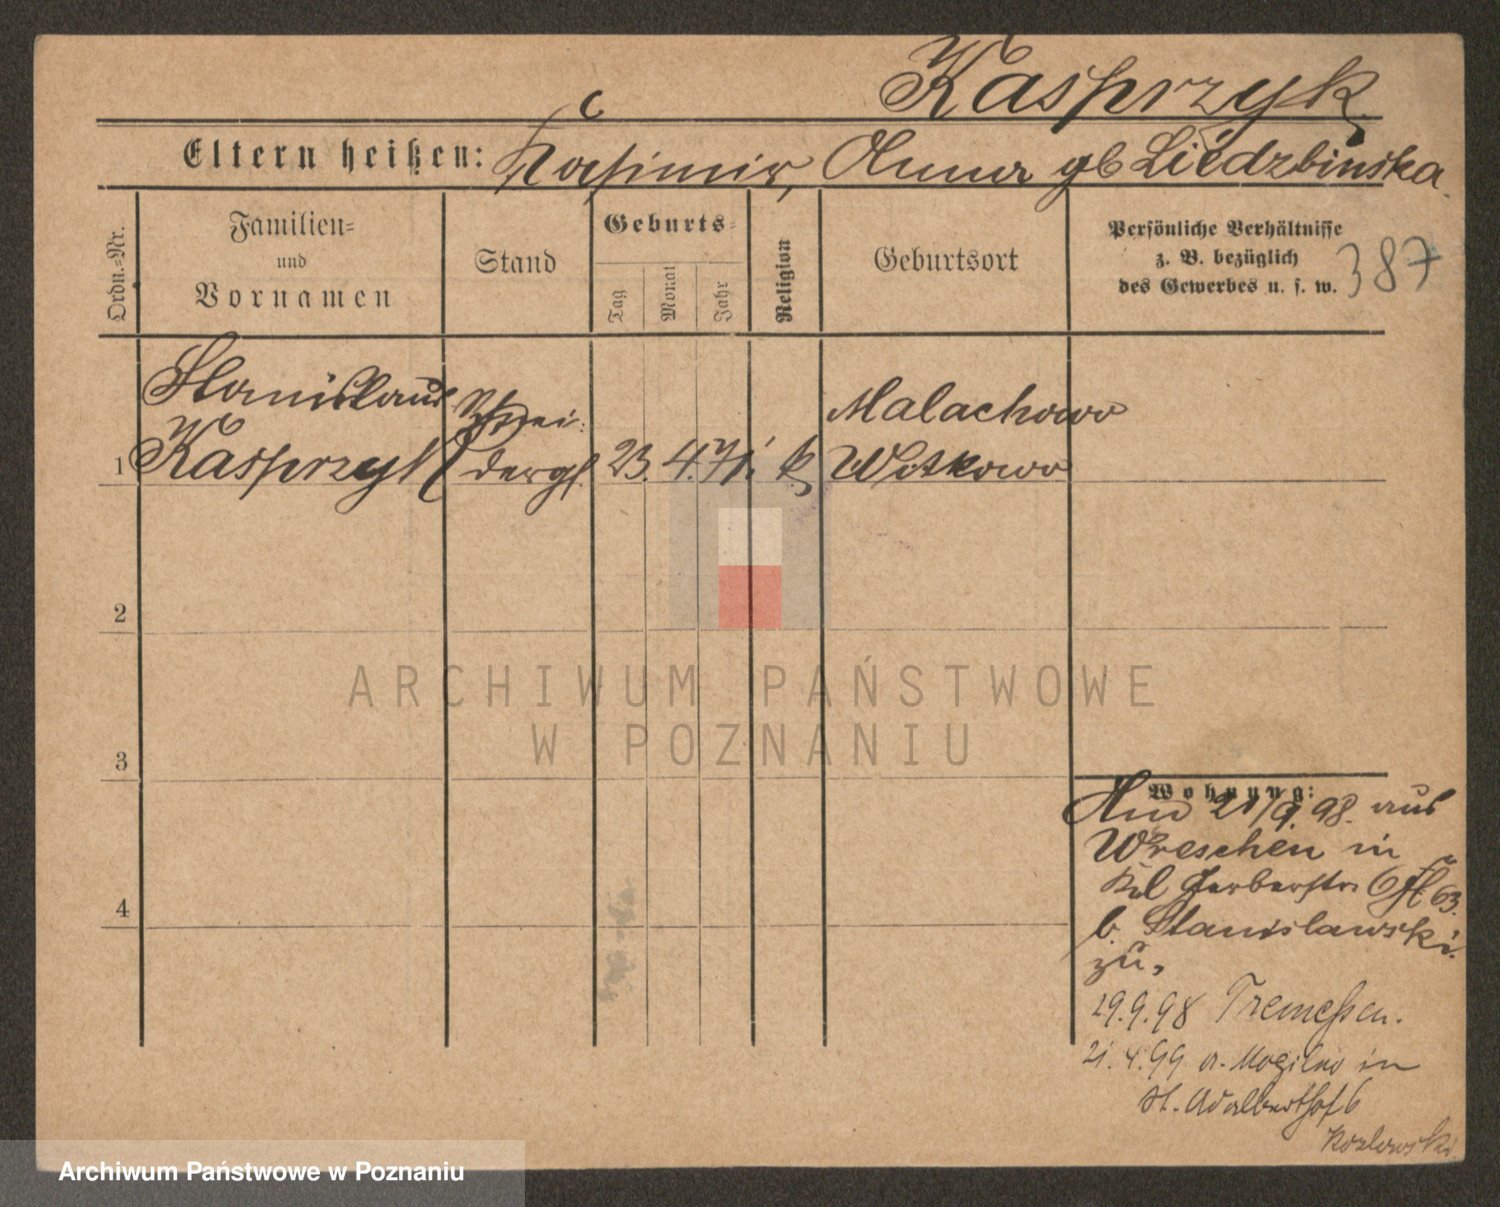 Kasprzyk
Eltern heißen: Kasimir, Anna gb Liedzbinska.
Ordn.-Nr.
Familien-
und
Vornamen
Stand
Geburts-
Tag
Monat
Jahr
Religion
Geburtsort
Persönliche Verhältnisse
z. B. bezüglich
des Gewerbes u. s. w.
387
Stanislaus
Kasprzyk
Schnei-
derges.
1
23. 4. 71. k
Malachowo
Witkowo
2
ARCHIWUM PAŃSTWOWE
W POZNANIU
3
Wohnung:
21/9. 98. aus
Wreschen in
Kl Gerberstr. 6 H 63.
b. Stanislawski.
zu.
4
29.9.98 Tremessen.
21. 4. 99 a. Mogilno in
St. Adalberthof 6
Kozlowski
Archiwum Państwowe w Poznaniu